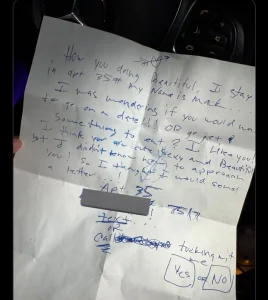 How you doing Beautiful, I stay
in apt 35 my Name is Mark...
I was wondering if you would want
to go on a date!! OR go get
Something to eat? I like you!
I think you are sexy and Beautiful
but I didn't know how to approach
you! so I thought I would send
a letter!!
Apt 35
text!!
OR
Call fucking with
me
Yes or No